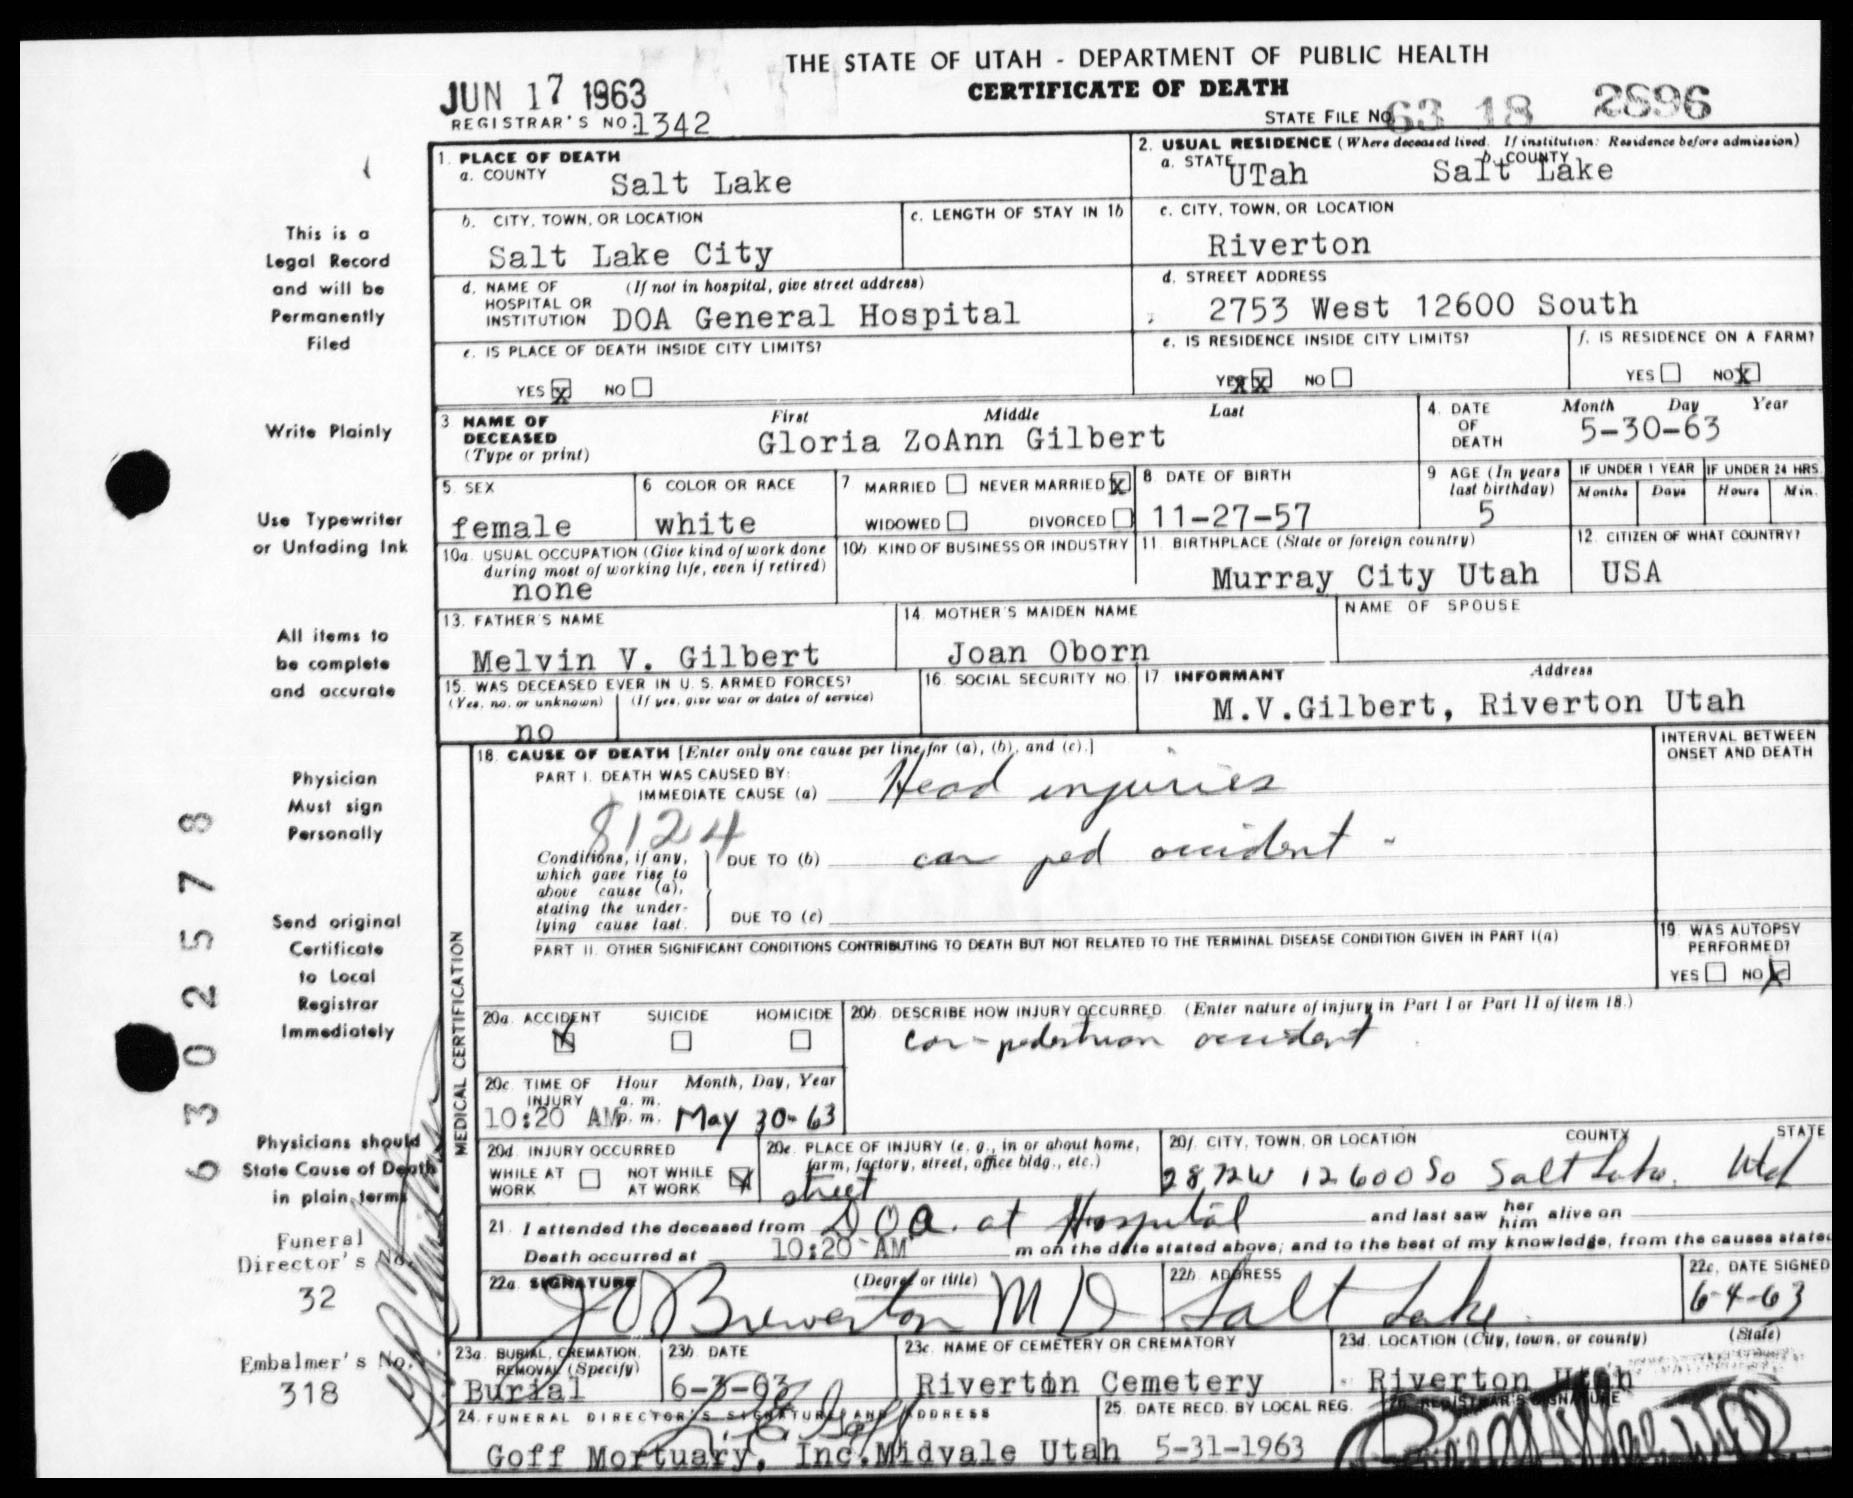 THE STATE OF UTAH - DEPARTMENT OF PUBLIC HEALTH
CERTIFICATE OF DEATH
JUN 17 1963
REGISTRAR'S NO. 1342
STATE FILE NO. 63 18 2896
This is a
Legal Record
and will be
Permanently
Filed
Write Plainly
Use Typewriter
or Unfading Ink
All items to
be complete
and accurate
Physician
Must sign
Personally
Send original
Certificate
to Local
Registrar
Immediately
Physicians should
State Cause of Death
in plain terms
Funeral
Director's No.
32
Embalmer's No.
318
6 3 0 2 5 7 8
1. PLACE OF DEATH
a. COUNTY Salt Lake
2. USUAL RESIDENCE (Where deceased lived. If institution: Residence before admission)
a. STATE UTah b. COUNTY Salt Lake
b. CITY, TOWN, OR LOCATION
Salt Lake City
c. LENGTH OF STAY IN 1b
c. CITY, TOWN, OR LOCATION
Riverton
d. NAME OF HOSPITAL OR INSTITUTION (If not in hospital, give street address)
DOA General Hospital
d. STREET ADDRESS
2753 West 12600 South
e. IS PLACE OF DEATH INSIDE CITY LIMITS?
YES X NO
e. IS RESIDENCE INSIDE CITY LIMITS?
YES X NO
f. IS RESIDENCE ON A FARM?
YES NO X
3 NAME OF DECEASED (Type or print)
First Middle Last
Gloria ZoAnn Gilbert
4. DATE OF DEATH
Month Day Year
5-30-63
5. SEX
female
6 COLOR OR RACE
white
7 MARRIED NEVER MARRIED X
WIDOWED DIVORCED
8 DATE OF BIRTH
11-27-57
9 AGE (In years last birthday)
5
IF UNDER 1 YEAR
Months Days
IF UNDER 24 HRS.
Hours Min.
10a. USUAL OCCUPATION (Give kind of work done during most of working life, even if retired)
none
10b. KIND OF BUSINESS OR INDUSTRY
11. BIRTHPLACE (State or foreign country)
Murray City Utah
12. CITIZEN OF WHAT COUNTRY?
USA
13. FATHER'S NAME
Melvin V. Gilbert
14. MOTHER'S MAIDEN NAME
Joan Oborn
NAME OF SPOUSE
15. WAS DECEASED EVER IN U. S. ARMED FORCES?
(Yes, no, or unknown) (If yes, give war or dates of service)
no
16. SOCIAL SECURITY NO.
17. INFORMANT Address
M.V.Gilbert, Riverton Utah
MEDICAL CERTIFICATION
18. CAUSE OF DEATH [Enter only one cause per line for (a), (b), and (c).]
INTERVAL BETWEEN ONSET AND DEATH
PART I. DEATH WAS CAUSED BY:
IMMEDIATE CAUSE (a) Head injuries
8124
Conditions, if any, which gave rise to above cause (a), stating the underlying cause last.
DUE TO (b) car ped accident -
DUE TO (c)
PART II. OTHER SIGNIFICANT CONDITIONS CONTRIBUTING TO DEATH BUT NOT RELATED TO THE TERMINAL DISEASE CONDITION GIVEN IN PART I(a)
19. WAS AUTOPSY PERFORMED?
YES NO X
20a. ACCIDENT X SUICIDE HOMICIDE
20b. DESCRIBE HOW INJURY OCCURRED. (Enter nature of injury in Part I or Part II of item 18.)
car-pedestrian accident
20c. TIME OF INJURY Hour a. m. p. m. Month, Day, Year
10:20 AM May 30-63
20d. INJURY OCCURRED
WHILE AT WORK NOT WHILE AT WORK X
20e. PLACE OF INJURY (e. g., in or about home, farm, factory, street, office bldg., etc.)
street
20f. CITY, TOWN, OR LOCATION COUNTY STATE
2872 W 12600 So Salt Lake. Utah
21. I attended the deceased from DOA. at Hospital and last saw her him alive on
Death occurred at 10:20 AM m on the date stated above; and to the best of my knowledge, from the causes stated
22a. SIGNATURE (Degree or title)
J O Brewerton M D
22b. ADDRESS
Salt Lake.
22c. DATE SIGNED
6-4-63
23a. BURIAL, CREMATION, REMOVAL (Specify)
Burial
23b DATE
6-3-63
23c. NAME OF CEMETERY OR CREMATORY
Riverton Cemetery
23d. LOCATION (City, town, or county) (State)
Riverton Utah
24. FUNERAL DIRECTOR'S SIGNATURE AND ADDRESS
Goff Mortuary, Inc. Midvale Utah
25. DATE RECD. BY LOCAL REG.
5-31-1963
26. REGISTRAR'S SIGNATURE